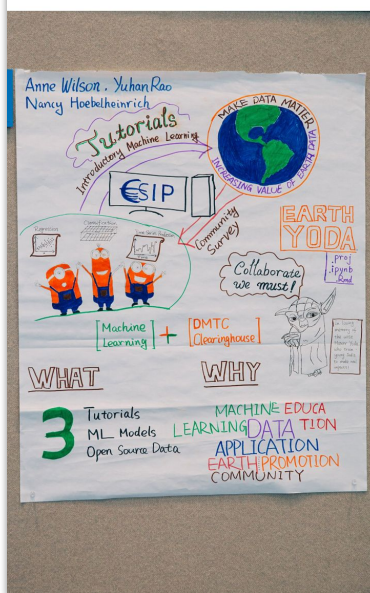 Anne Wilson. Yuhan Rao
Nancy Hoebelheinrich
Tutorials
Introductory Machine Learning
MAKE DATA MATTER
INCREASING VALUE OF EARTH DATA
ESIP
Community
Survey
EARTH
YODA
.proj
.ipynb
.Rmd
Regression
Classification
Collaborate
we must!
[Machine
Learning]
+
[DMTC
Clearinghouse]
WHAT
WHY
3
Tutorials
ML Models
Open Source Data
MACHINE EDUCA
LEARNING DATA TION
APPLICATION
EARTH PROMOTION
COMMUNITY